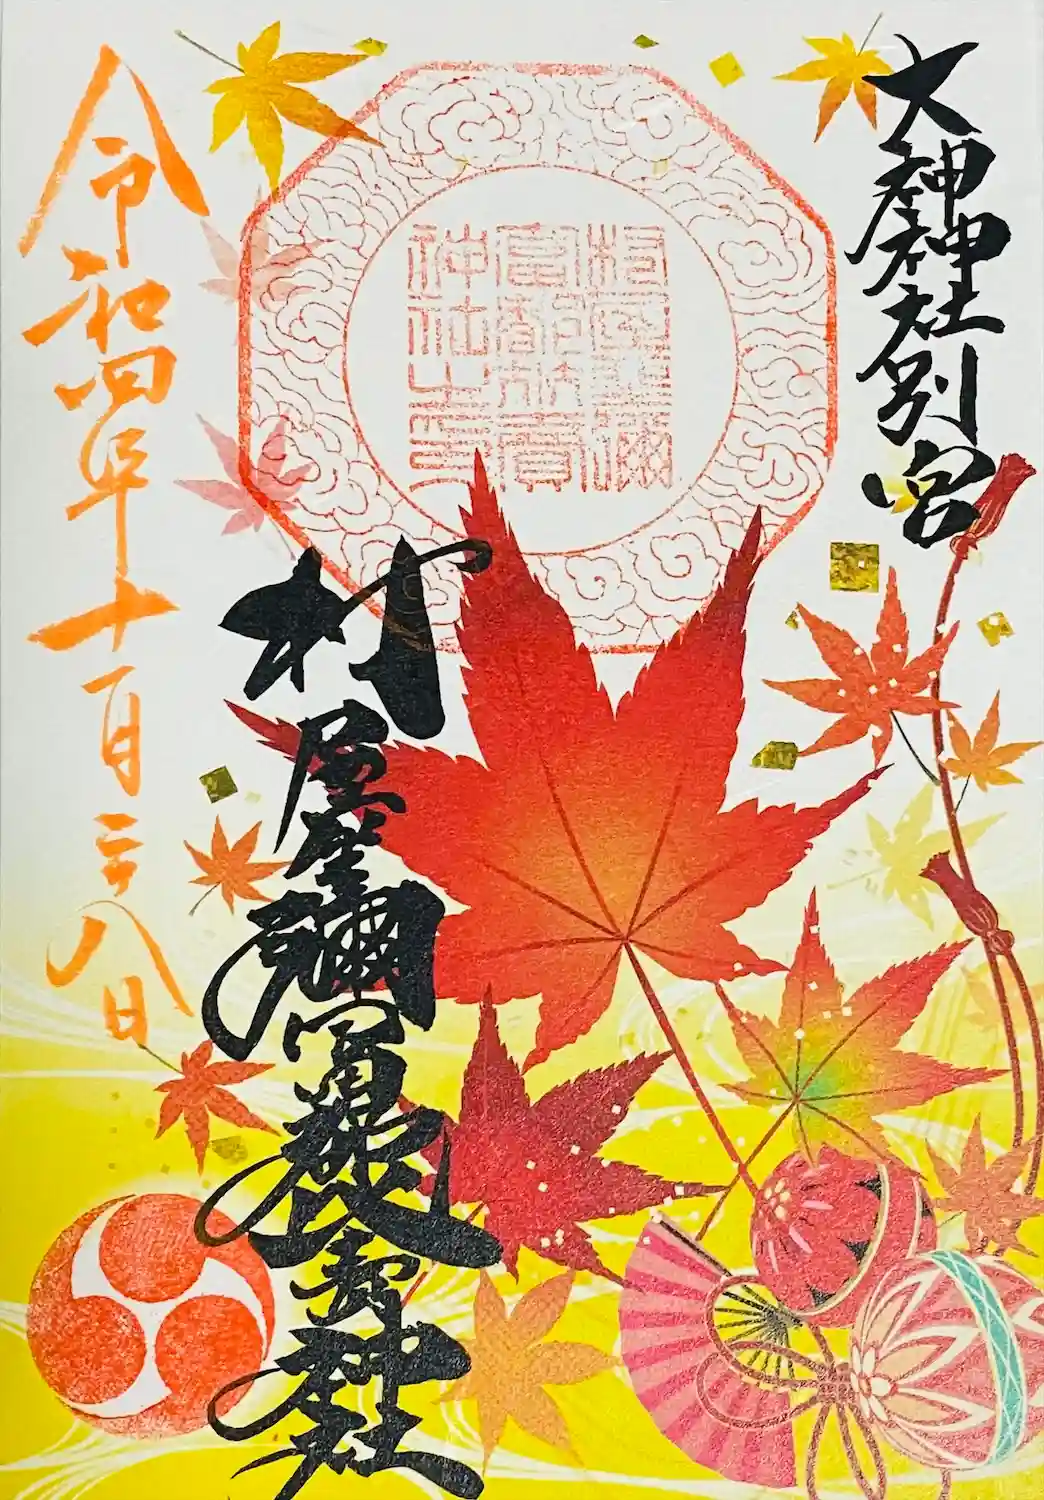 大神神社別宮
村屋坐彌冨都比賣神社
令和四年十一月二十八日
村屋坐彌
冨都比賣
神社之印